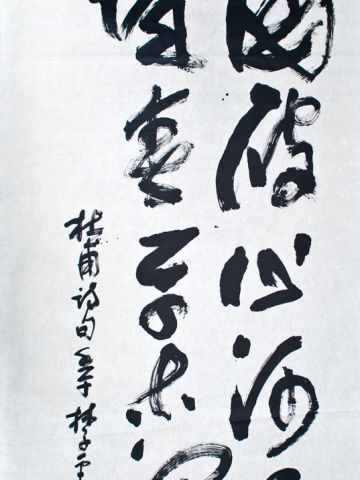 國破山河
城春草木
杜甫詩句